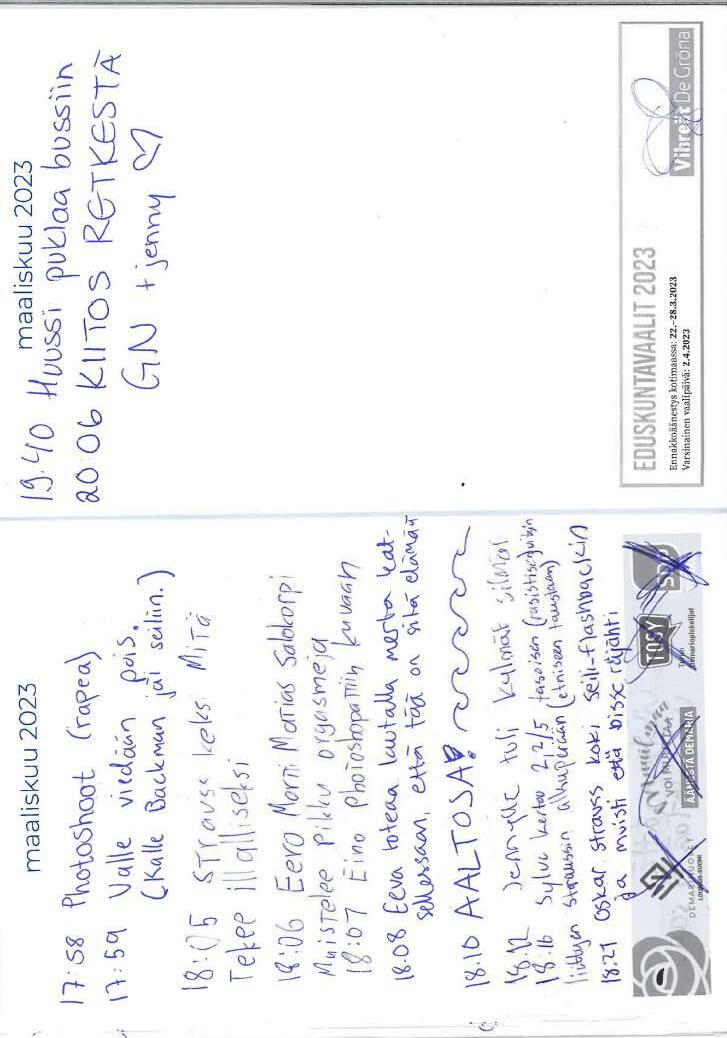 maaliskuu 2023
17:58 Photoshoot (rapea)
17:59 Valle viedään pois.
(Kalle Backman jäi seiliin.)
18:05 Strauss keksi Mitä
Tekee illalliseksi
18:06 Eero Martti Matias Salokorpi
Muistelee pikku orgasmeja
18:07 Eino Photoshopattiin kuvaan
18:08 Eeva toteaa lautalla merta kat-
sellessaan, että tää on sitä elämää
18:10 AALTOSA?
18.12 Jennylle tuli kylmät silmät
18:16 Sylvi kertoo 2,2/5 tasoisen (rasistisen) vitsin
liittyen straussin alkuperään (etniseen taustaan)
18:21 Oskar Strauss koki Seili-flashbackin
ja muisti että bisse räjähti
DEMARINUORET
LOUNAIS-SUOMI
VOI MUUTTAA
ÄÄNESTÄ DEMARIA
TOSY
Turun
demariopiskelijat
SDP
maaliskuu 2023
19.40 Huussi puklaa bussiin
20.06 KIITOS RETKESTÄ
GN + jenny ♡
EDUSKUNTAVAALIT 2023
Ennakkoäänestys kotimaassa: 22.–28.3.2023
Varsinainen vaalipäivä: 2.4.2023
Vihreät De Gröna